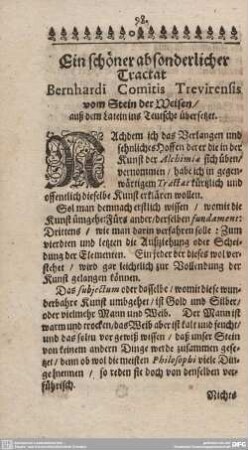 98.
Ein schöner absonderlicher
Tractat
Bernhardi Comitis Trevirensis
vom Stein der Weisen/
auß dem Latein ins Teutsche übersetzet.
NAchdem ich das Verlangen und
sehnliches Hoffen derer die in der
Kunst der Alchimiæ sich üben/
vernommen / habe ich in gegen-
wärtigem Tractat kürtzlich und
offentlich dieselbe Kunst erklären wollen.
Sol man demnach erstlich wissen / womit die
Kunst ümgehe: Fürs ander/ derselben fundament:
Drittens / wie man darin verfahren solle : Zum
vierdten und letzten die Aufziehung oder Schei-
dung der Elementen. Ein jeder der dieses wol ver-
stehet / wird gar leichtlich zur Vollendung der
Kunst gelangen können.
Das subjectum oder dasselbe / womit diese wun-
derbahre Kunst umbgehet/ ist Gold und Silber/
oder vielmehr Mann und Weib. Der Mann ist
warm und trocken/ das Weib aber ist kalt und feucht/
und das solstu vor gewiß wissen / daß unser Stein
von keinem andern Dinge werde zusammen gese-
tzet / denn ob wol die meisten Philosophi viele Din-
ge nennen / so reden sie doch von denselben ver-
führisch.
Nichts